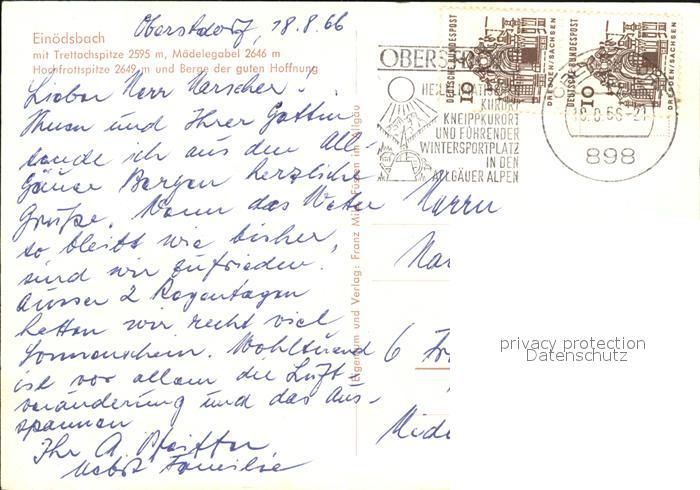 Oberstdorf, 18.8.66
Einödsbach
mit Trettachspitze 2595 m, Mädelegabel 2646 m
Hochfrottspitze 2649 m und Berge der guten Hoffnung
Lieber Herr
Ihnen und Ihrer Gattin
sende ich aus den All-
gäuer Bergen herzliche
Grüße. Wenn das Wetter
so bleibt wie bisher,
sind wir zufrieden.
Ausser 2 Regentagen
hatten wir recht viel
Sonnenschein. Wohltuend
ist vor allem die Luft-
veränderung und das Aus-
spannen
Ihr A.
nebst Familie
Eigentum und Verlag: Franz Milz, Füssen im Allgäu
DEUTSCHE BUNDESPOST
10
DRESDEN/SACHSEN
DEUTSCHE BUNDESPOST
10
DRESDEN/SACHSEN
OBERST
HEILKLIMATISCHER
KURORT
KNEIPPKURORT
UND FÜHRENDER
WINTERSPORTPLATZ
IN DEN
ALLGÄUER ALPEN
18.8.66-21
898
Herrn
6
privacy protection
Datenschutz